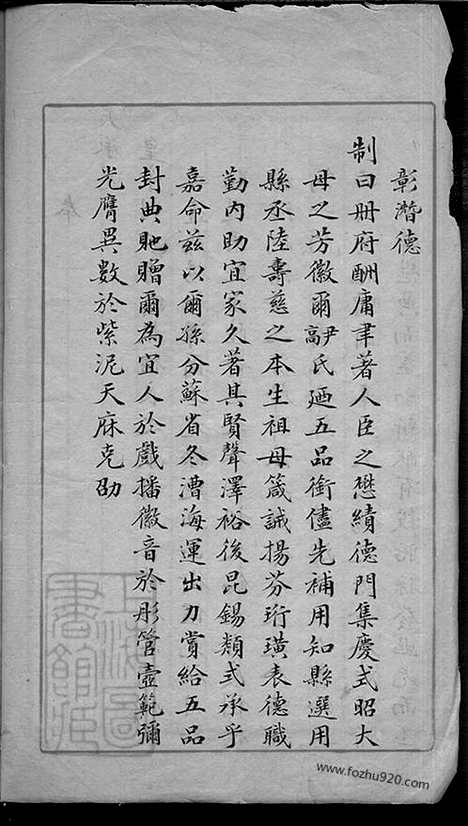 彰潛德
制曰冊府酬庸聿著人臣之懋績德門集慶式昭大
母之芳徽爾尹高氏迺五品銜儘先補用知縣選用
縣丞陸壽慈之本生祖母箴誡揚芬珩璜表德職
勤內助宜家久著其賢聲澤裕後昆錫類式承乎
嘉命茲以爾孫分蘇省冬漕海運出力賞給五品
封典貤贈爾為宜人於戲播徽音於彤管壼範彌
光膺異數於紫泥天庥克劭
www.fozhu920.com